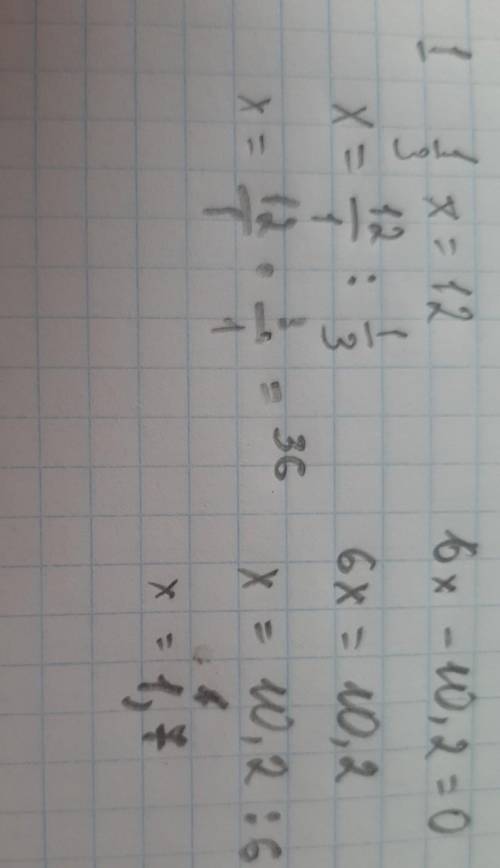 1 1/3 x = 12
x = 12/1 : 1/3
x = 12/1 · 3/1 = 36
6x - 10,2 = 0
6x = 10,2
x = 10,2 : 6
x = 1,7